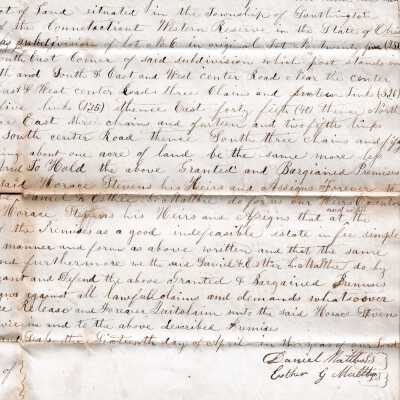 of Land situated in the Township of
of the Connecticut Western Reserve in the State of Ohio
as subdivision of Lot No 6 in original Lot
South East Corner of said subdivision which post stands
th and South & East and West center Road near the center
East & West center Road three Chains and links (3.26)
five links (175) thence East forty fifth (40) thence North
ce East three chains and fourteen and two fifths links
South center Road thence South three chains and fifty
about one acre of land be the same more less
And To Hold the above Granted and Bargained Premises
said Horace Stevens his Heirs and Assigns Forever
Daniel & Esther G Matthews do for us our Heirs Executors
Horace Stevens his Heirs and Assigns that at the
of the Premises as a good indefeasible estate in fee simple
manner and form as above written and that the same
and furthermore we the said Daniel & Esther G Matthews do by
rant and Defend the above Granted & Bargained Premises
gns against all lawful claims and demands whatsoever
Release and Forever Quitclaim unto the said Horace Stevens
in and to the above described Premises
and seals the Sixteenth day of April in the year of our Lord
Daniel Matthews
Esther G Matthews
of